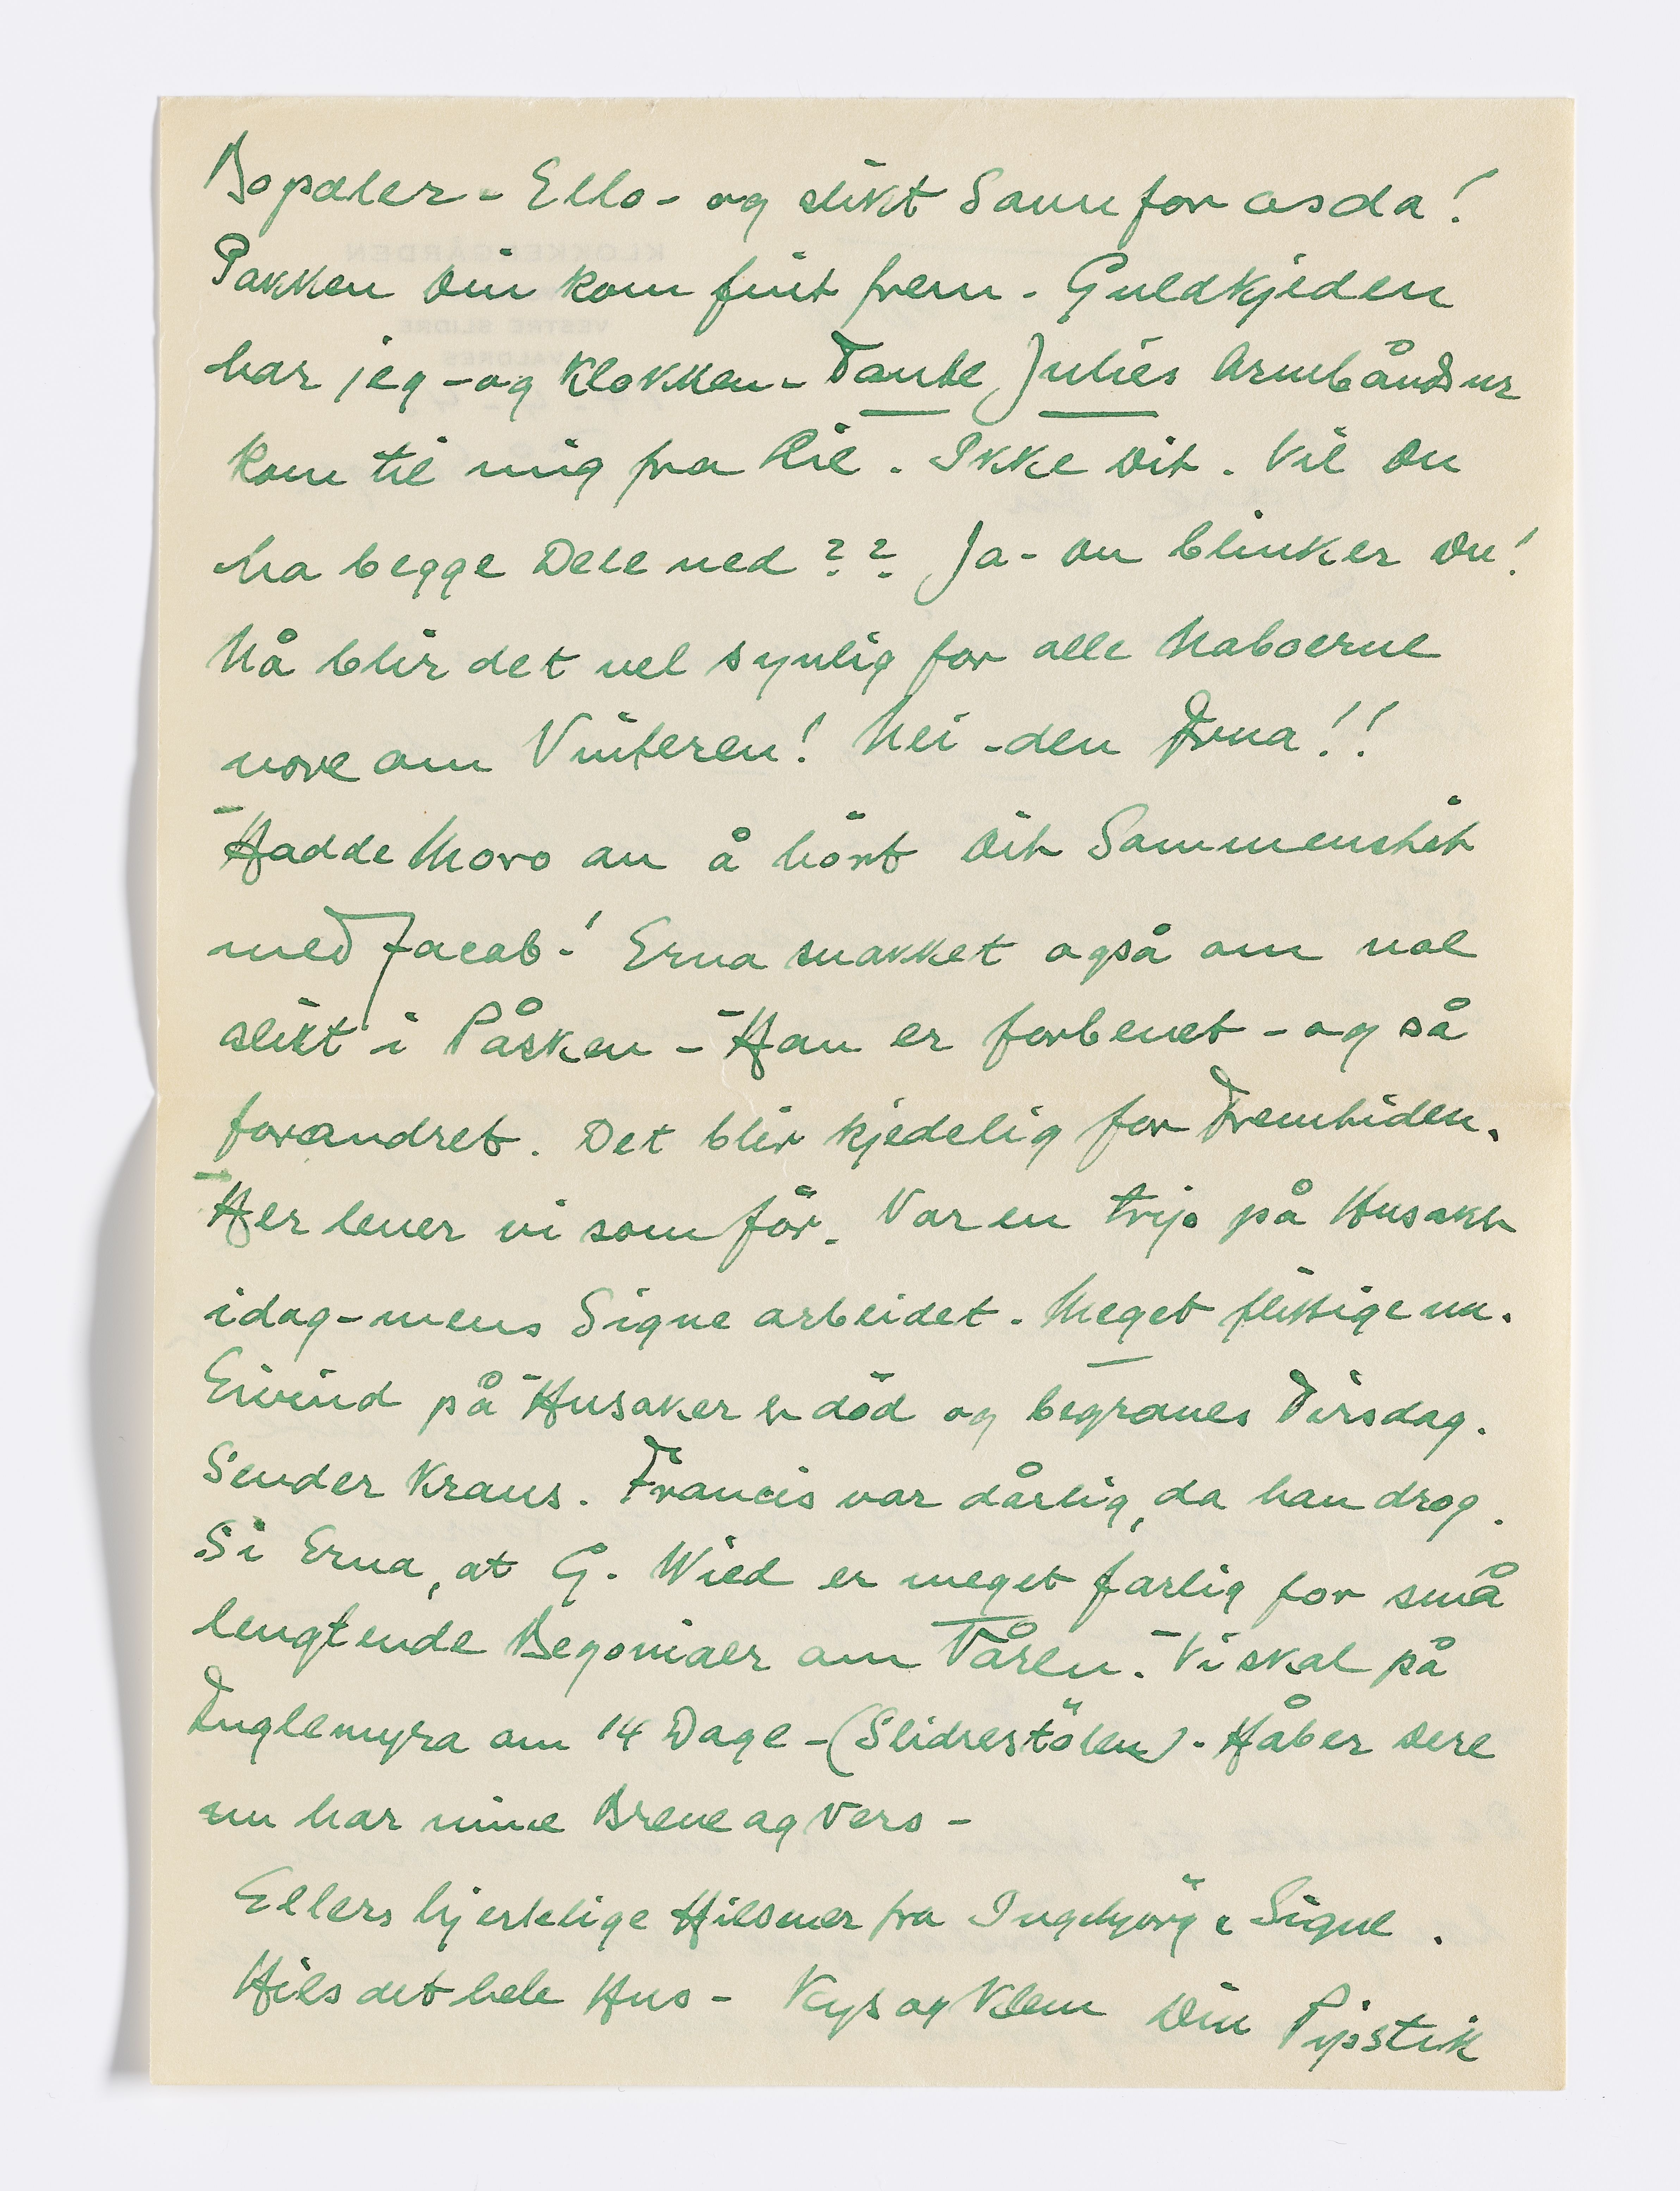 Bopæler - Ello - og slikt Sann for osda!
Pakken Din kom fint frem - Guldkjeden
har jeg - og Klokken - Tante Julies Armbåndsur
kom til mig fra Lil. Ikke Dit. Vil Du
ha begge Dele ned?? Ja - Du blinker Du!
Nå blir det vel synlig for alle Naboerne
nove om Vinteren! Nei - den Erna!!
Hadde Moro av å hört Dit Sammenstöt
med Jacob -! Erna snakket også om noe
slikt i Påsken - Han er forbenet - og så
forandret. Det blir kjedelig for Fremtiden.
Her lever vi som för. Var en trip på Husaker
idag - mens Signe arbeidet. Meget flittige nu.
Eivind på Husaker er död og begraves Tirsdag.
Sender Krans. Francis var dårlig, da han drog.
Si Erna, at G. Wied er meget farlig for små
lengtende Begoniaer om Våren. Vi skal på
Fuglemyra om 14 Dage - (Slidrestölen) - Håber Dere
nu har mine Breve og Vers -
Ellers hjertelige Hilsner fra Ingebjörg & Signe.
Hils det hele Hus - Kys og Klem Din Pipstik